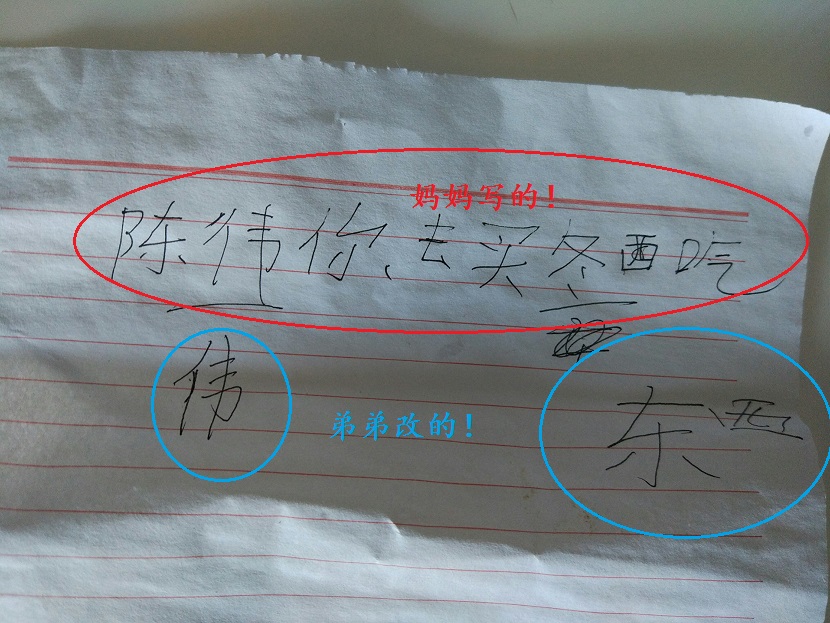 妈妈写的！
陈伟你去买冬西吃
伟
弟弟改的！
东西